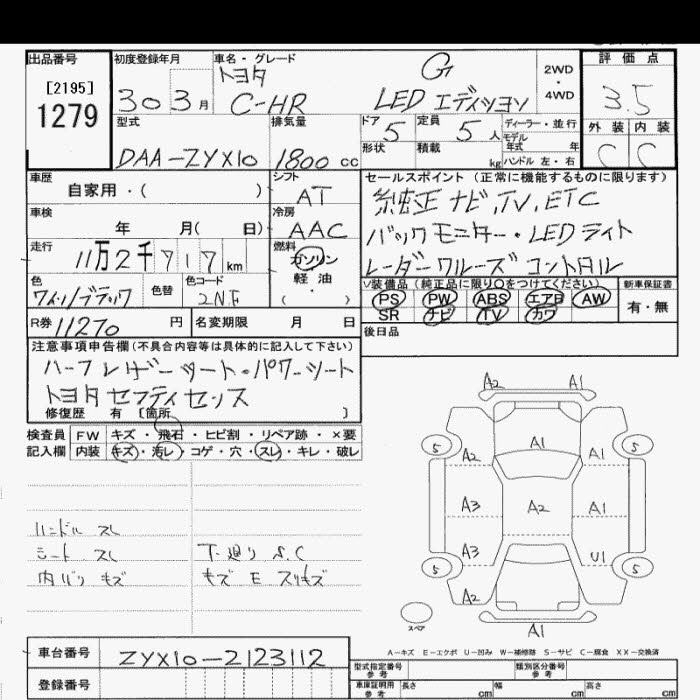 出品番号 初度登録年月 車名・グレード 評価点
[2195]
1279
30 3月
トヨタ G
C-HR LED エディション
2WD・4WD
3.5
型式 排気量 ドア 定員 ディーラー・並行
DAA-ZYX10 1800 cc 5 5人 モデル年式 年
形状 積載 kg ハンドル 左・右
外装 内装
C C
車歴 シフト セールスポイント (正常に機能するものに限ります)
自家用・( ) AT 純正 ナビ,TV,ETC
車検 冷房
年 月( 日) AAC バックモニター・LEDライト
走行 燃料
11万2千717km ガソリン レーダークルーズコントロル
色 色替 色コード 軽油
ワインブラック 2NF ( ・ )
V装備品 (純正品に限り○をつけてください) 新車保証書
PS PW ABS エアB AW 有・無
SR ナビ TV カワ
R券 11270 円 名変期限 月 日
後日品
注意事項申告欄 (不具合内容等は具体的に記入して下さい)
ハーフレザーシート・パワーシート
トヨタセフティセンス
修復歴 有 [箇所 ]
検査員 FW キズ・飛石・ヒビ割・リペア跡・×要
記入欄 内装 キズ・汚レ・コゲ・穴・スレ・キレ・破レ
ハンドル スレ
シート スレ 下廻り S.C
内バリ キズ キズ E スリキズ
A2 A1
5 A1 5
A2 A1
A3 A2 A1
A3 U1
5 5
A2
スペア A1
A-キズ E-エクボ U-凹み W-補修跡 S-サビ C-腐食 XX-交換済
車台番号 ZYX10-2123112
登録番号
型式指定番号 参考 類別区分番号 参考
車庫証明用 参考 長さ cm 幅 cm 高さ cm